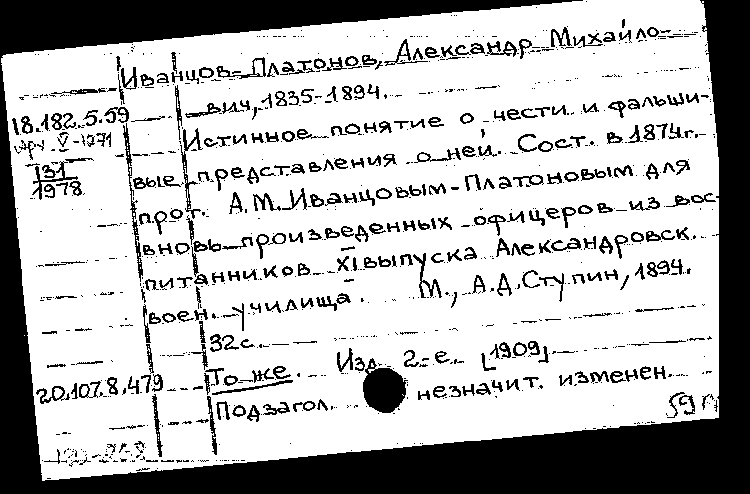 Иванцов-Платонов, Александр Михайло-
вич, 1835-1894.
18.182.5.59
Истинное понятие о чести и фальши-
131
1978
вые представления о ней. Сост. в 1874г.
прот. А.М. Иванцовым-Платоновым для
вновь произведенных офицеров из вос-
питанников XI выпуска Александровск.
воен. училища. М., А.Д. Ступин, 1894.
32с.
20.107.8.479
То же. Изд. 2-е. [1909]
Подзагол. незначит. изменен.